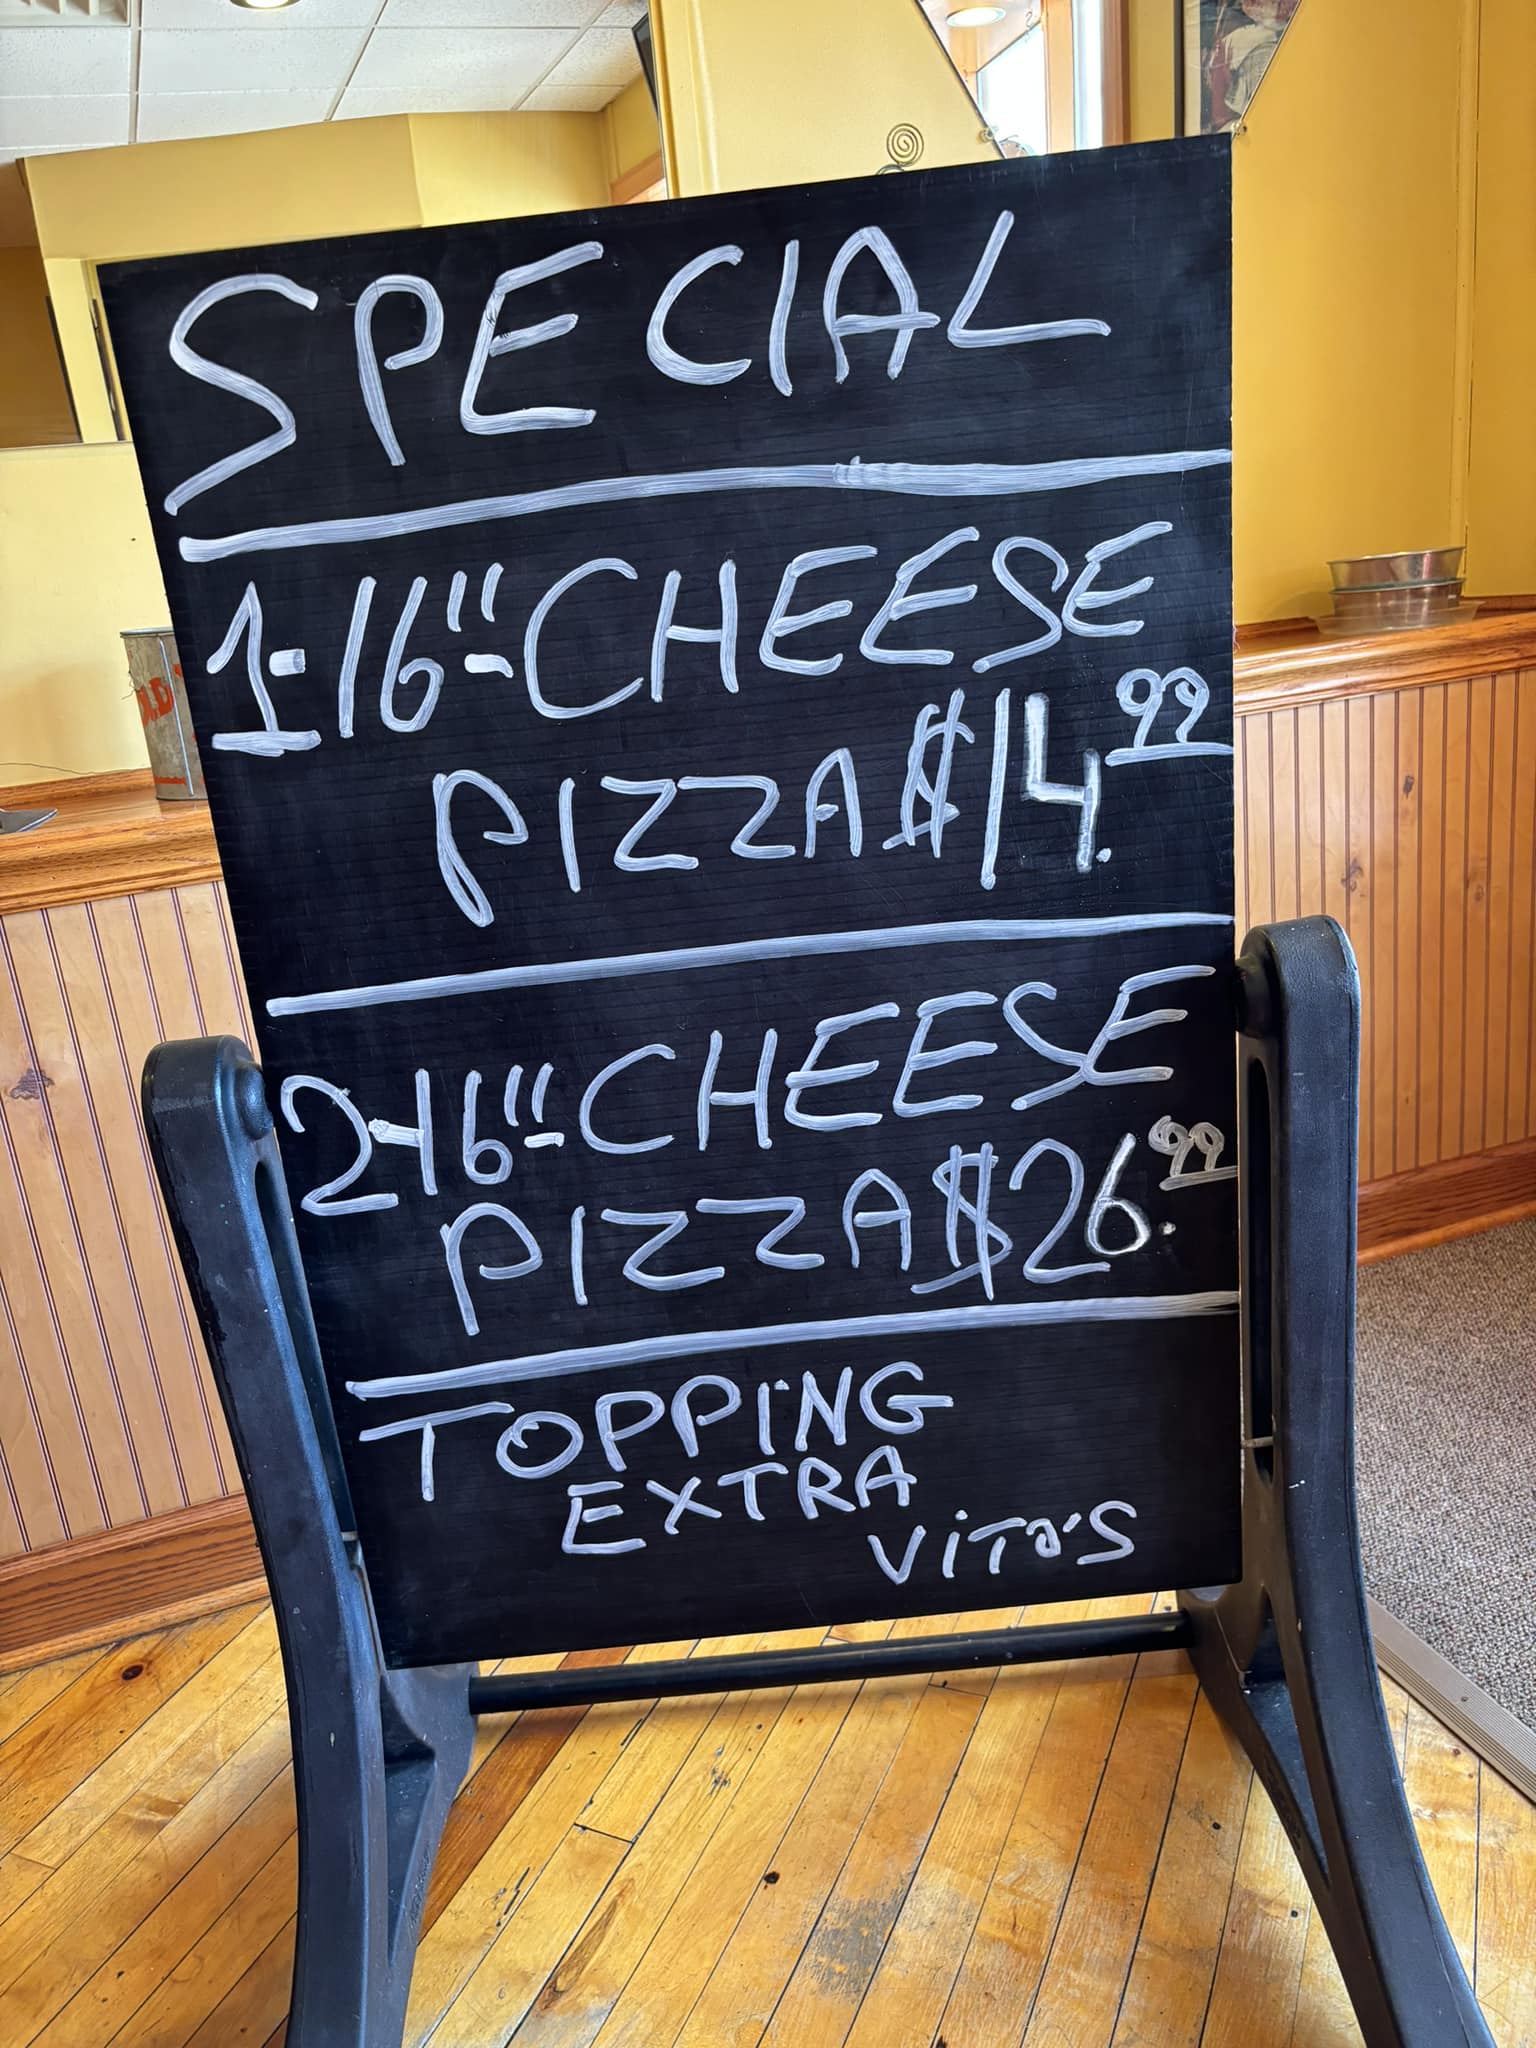 SPECIAL
1-16"-CHEESE
PIZZA $14.99
2-16"-CHEESE
PIZZA $26.99
TOPPING
EXTRA
ViTO'S